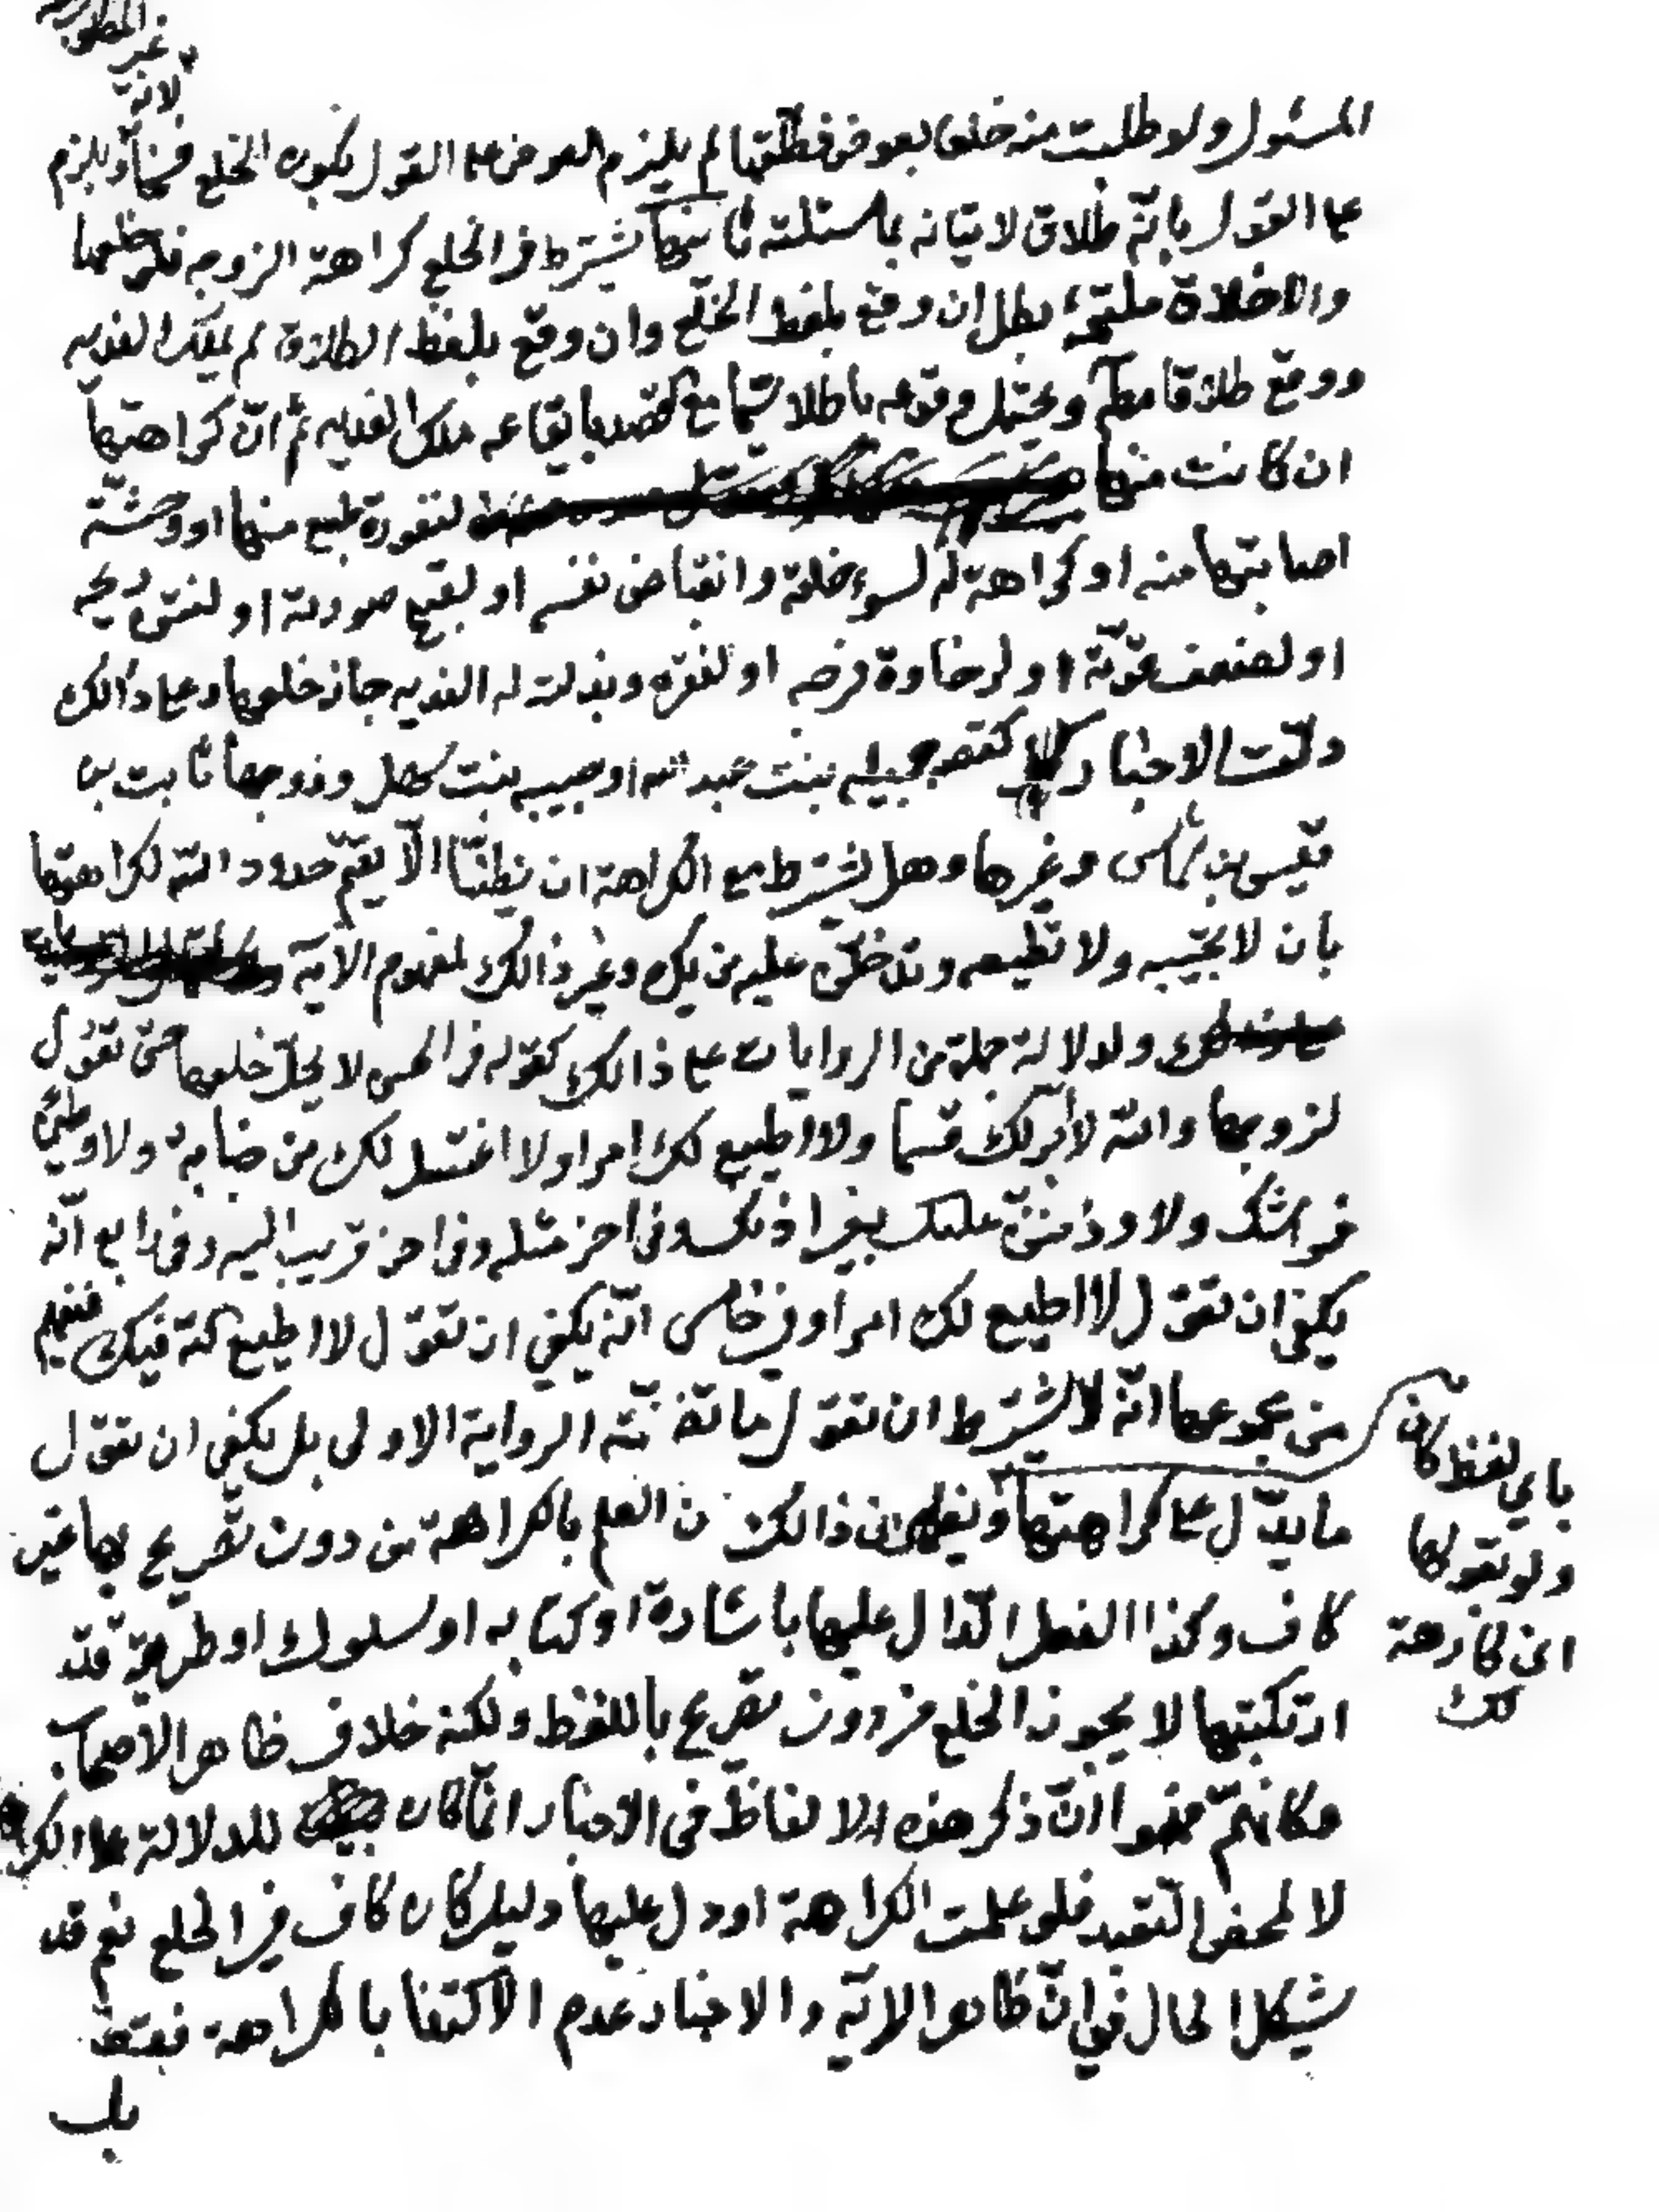 لانه
غير المطلوب
المسئول ولو طلبت منه خلعا بعوض فطلقها لم يلزم العوض على القول بكون الخلع فسخا ويلزم
على القول بانّه طلاق لاتيانه بما سئلته ثانيها يشترط في الخلع كراهة الزوجه فلو خلعها
والاخلاق ملتئمة بطل ان وقع بلفظ الخلع وان وقع بلفظ الطلاق لم يملك الفديه
ووقع طلاقا ويحتمل وقوعه باطلا سيّما مع قصده بايقاعه ملك الفديه ثم انّ كراهتها
ان كانت منها لنفورة طبع منها او وحشة
اصابتها منه او كراهة له لسوء خلقه وانقباض نفسه او لقبح صورته او لنتن ريحه
او لضعف قوّته او لرخاوة فرجه او لفقره وبذلت له الفديه جاز خلعها وعلى ذالك
دلّت الاخبار كقصه جميله بنت عبد الله او حبيبه بنت سهل وزوجها ثابت بن
قيس بن شماس وغيرها وهل يشترط مع الكراهة ان يظنّا الّا يقيما حدود الله لكراهتها
بان لا تجيبه ولا تطيعه وتدخل عليه من يكره وغير ذالك لمفهوم الاية
ولدلالة جملة من الروايات على ذالك كقوله في الحسن لا يحلّ خلعها حتى تقول
لزوجها والله لا أبرّ لك قسما ولا اطيع لك امرا ولا اغتسل لك من جنابة ولاوطئنّ
فراشك ولاوذننّ عليك بغير اذنك وفى اخر مثله وفى اخر قريب اليه وفى رابع انّه
يكفى ان تقول لا اطيع لك امرا وفي خامس انّه يكفي ان تقول لا اطيع الله فيك فيفهم
من مجموعها انّه لا يشترط ان تقول ما تضمّنته الرواية الاولى بل يكفي ان تقول
ما يدّل على كراهتها ويظهر من ذالك ان العلم بالكراهة من دون تصريح بها غير
كاف وكذا الفعل الدّال عليها باشارة او كتابه او سلوك او طريقة قد
ارتكبتها لا يجوز الخلع من دون تصريح باللفظ ولكنه خلاف ظاهر الاصحاب
وكانهم فهموا انّ ذكر هذه الالفاظ فى الاخبار انّما كان للدلالة على الكراهة
لا لمحض التّعبد فلو علمت الكراهة او دل عليها دليل كان كاف في الخلع نعم قد
يشكل الحال في انّ ظاهر الاية والاخبار عدم الاكتفا بالكراهة فقط
بل
باي لفظ كان
ولو بقولها
انى كارهة
لك